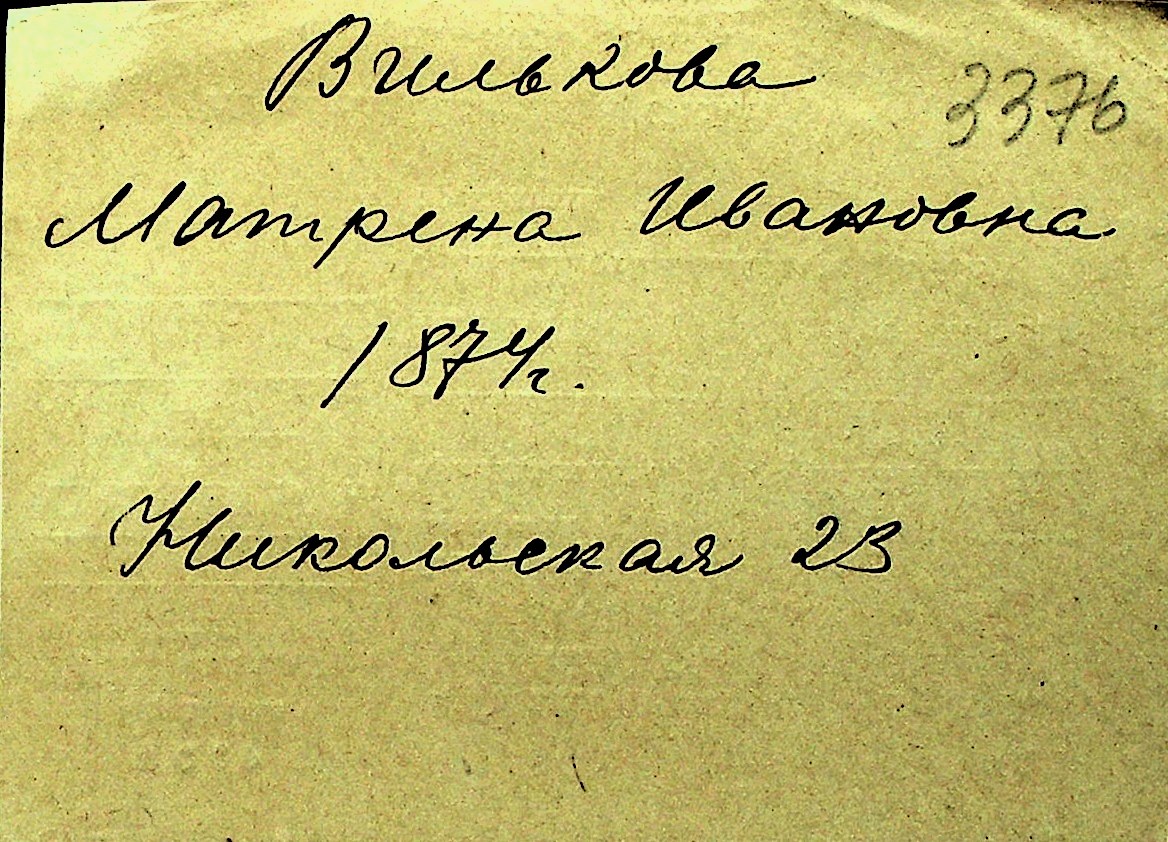 Вилькова
3376
Матрена Ивановна
1874г.
Никольская 23